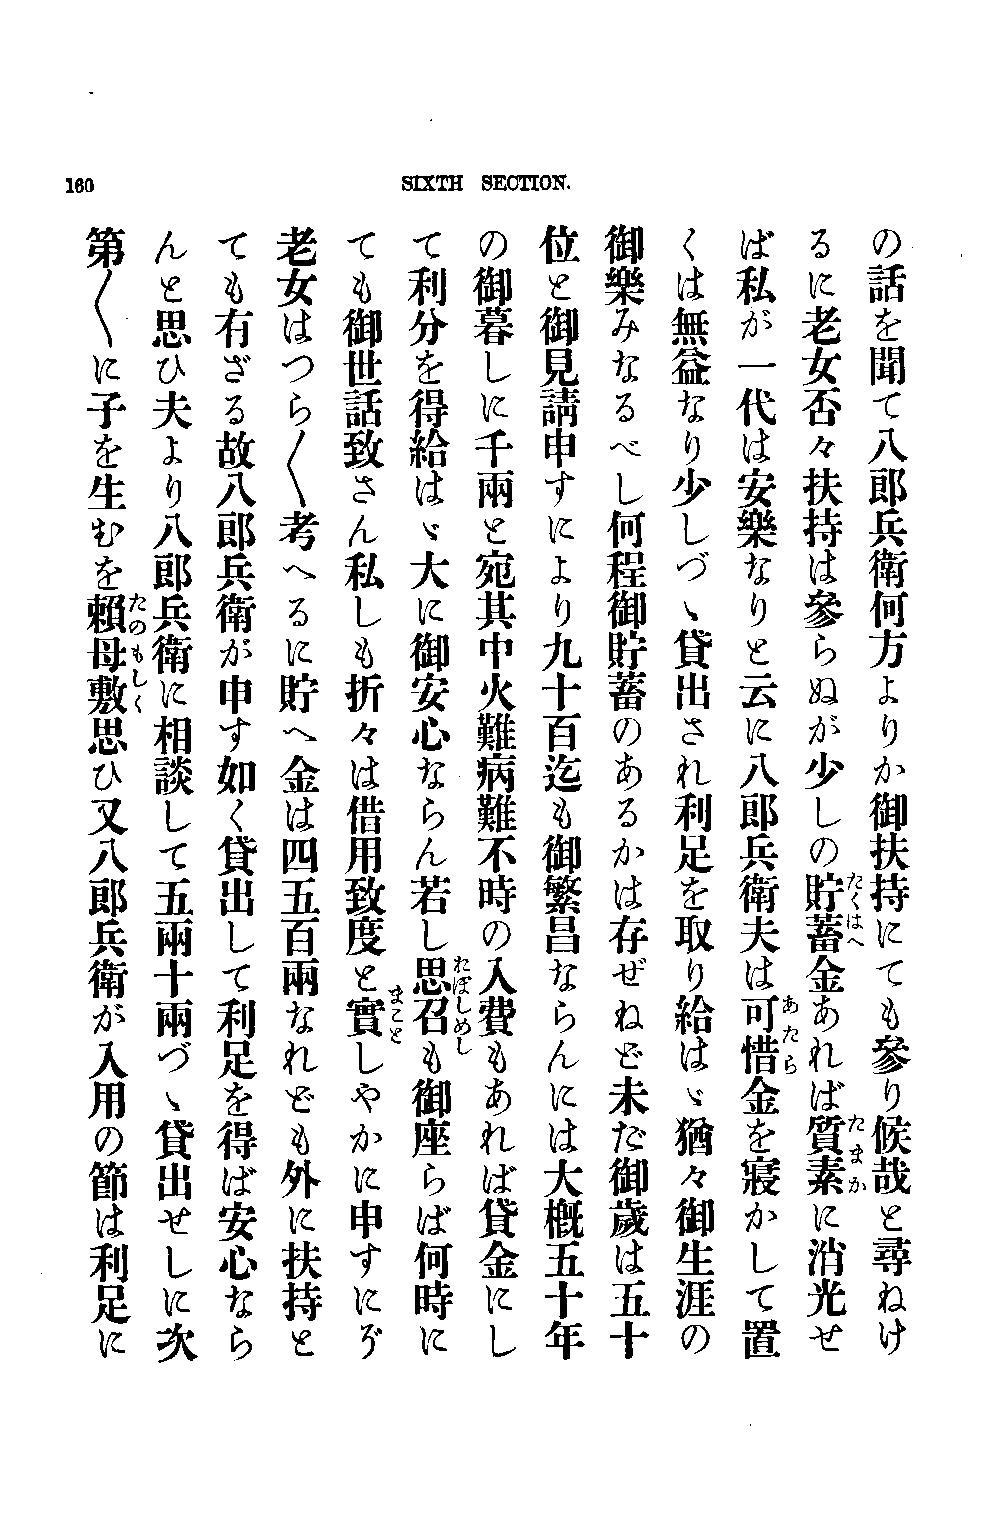 160
SIXTH SECTION.
の話を聞て八郎兵衛何方よりか御扶持にても參り候哉と尋ねけ
るに老女否々扶持は參らぬが少しの貯蓄金あれば質素に消光せ
たくはへ
たまか
ば私が一代は安樂なりと云に八郎兵衛夫は可惜金を寢かして置
あたら
くは無益なり少しづゝ貸出され利足を取り給はゞ猶々御生涯の
御樂みなるべし何程御貯蓄のあるかは存ぜねど未だ御歲は五十
位と御見請申すにより九十百迄も御繁昌ならんには大概五十年
の御暮しに千兩と宛其中火難病難不時の入費もあれば貸金にし
て利分を得給はゞ大に御安心ならん若し思召も御座らば何時に
おぼしめし
ても御世話致さん私しも折々は借用致度と實しやかに申すにぞ
まこと
老女はつら〱考へるに貯へ金は四五百兩なれども外に扶持と
ても有ざる故八郎兵衛が申す如く貸出して利足を得ば安心なら
んと思ひ夫より八郎兵衛に相談して五兩十兩づゝ貸出せしに次
第〱に子を生むを賴母敷思ひ又八郎兵衛が入用の節は利足に
たのもしく